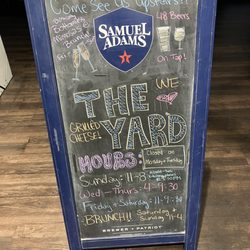 Come See Us Upstairs!
SAMUEL
ADAMS
48 Beers
On Tap!
WE
THE
GRILLED
CHEESE!
YARD
HOURS:
Closed on
Monday + Tuesday
Sunday: 11-8
Wed - Thurs: 4-9:30
Friday + Saturday: 11-9:30
BRUNCH!! Saturday &
Sunday 11-4
BREWER • PATRIOT